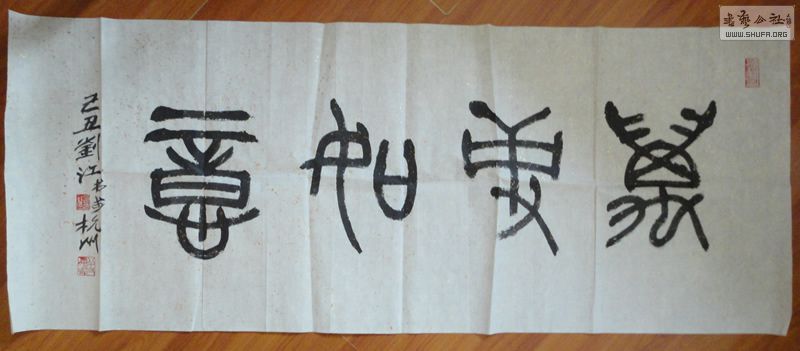 萬事如意
己丑劉江书於杭州
書藝公社
WWW.SHUFA.ORG